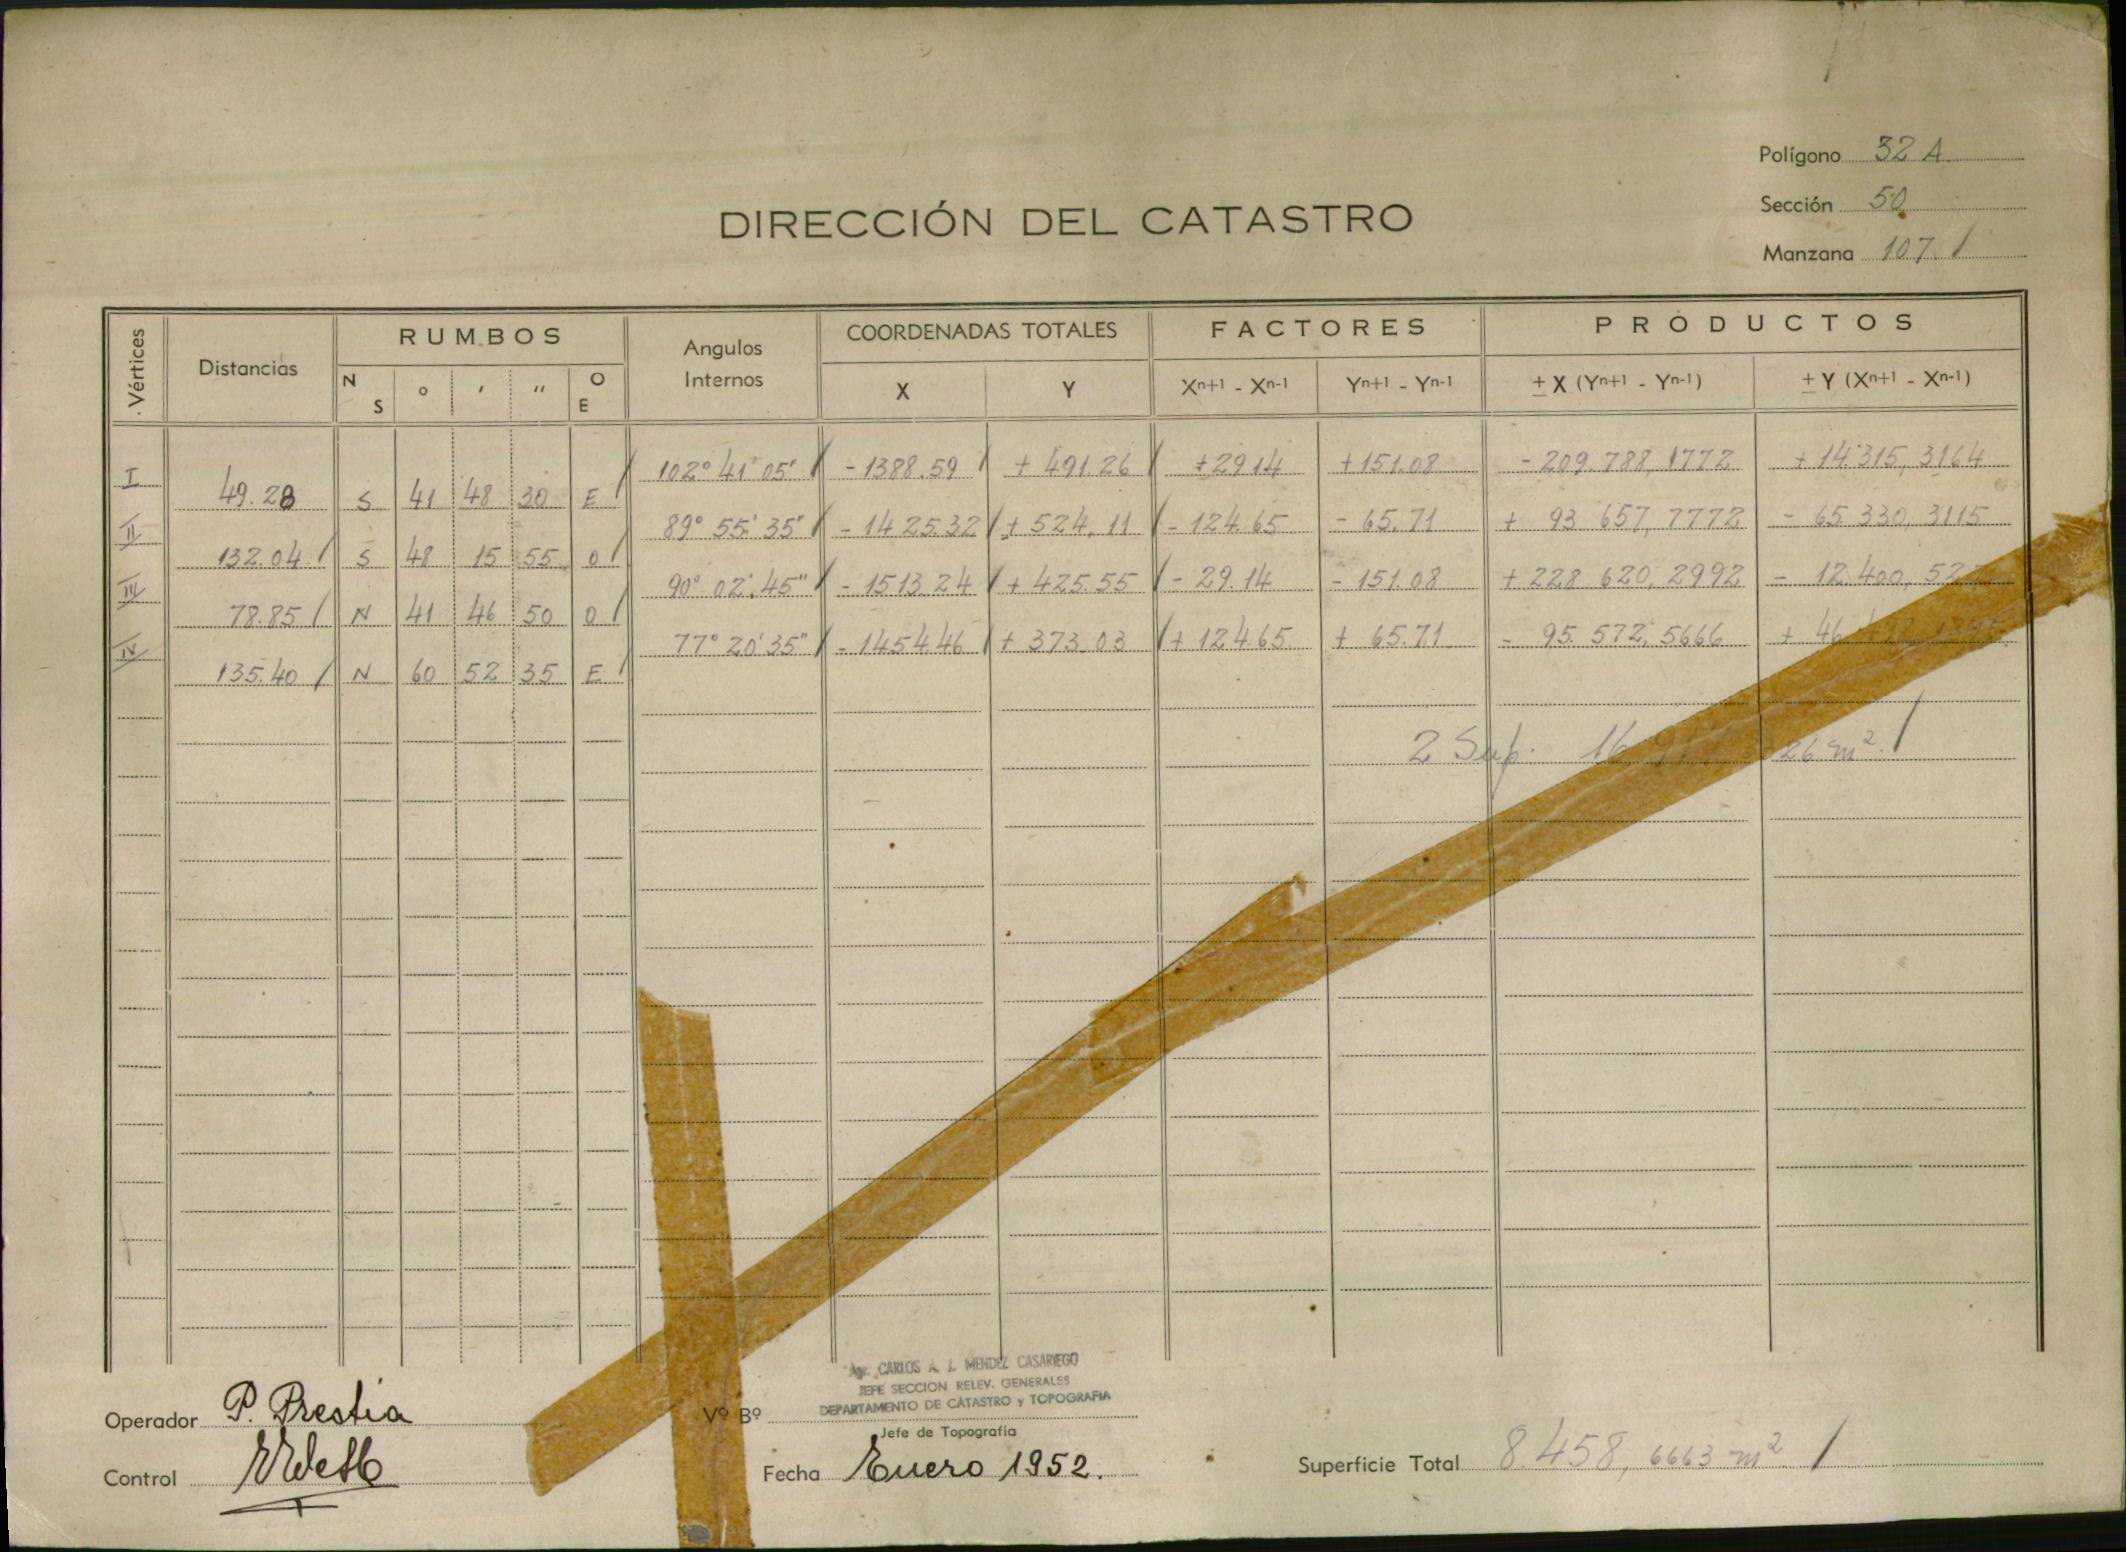 Polígono 32 A.
Sección 50
Manzana 107. /
DIRECCIÓN DEL CATASTRO
Vértices Distancias RUMBOS Angulos Internos COORDENADAS TOTALES FACTORES PRODUCTOS
N S ° ' " O E X Y Xn+1 - Xn-1 Yn+1 - Yn-1 ± X (Yn+1 - Yn-1) ± Y (Xn+1 - Xn-1)
I 102° 41' 05" / - 1388.59 / + 491.26 / + 29.14 + 151.08 - 209.788,1772 + 14.315,3164
49.28 S 41 48 30 E /
II 89° 55' 35" / - 1425.32 / + 524.11 / - 124.65 - 65.71 + 93 657,7772 - 65 330,3115
132.04 / S 48 15 55 O /
III 90° 02' 45" / - 1513.24 / + 425.55 / - 29.14 - 151.08 + 228 620,2992 - 12.400,52
78.85 / N 41 46 50 O /
IV 77° 20' 35" / - 1454.46 / + 373.03 / + 124.65 + 65.71 - 95.572,5666 + 46
135.40 / N 60 52 35 E /
2 Sup. 16 26 m² /
Agr. CARLOS A. J. MENDEZ CASARIEGO
JEFE SECCION RELEV. GENERALES
DEPARTAMENTO DE CATASTRO y TOPOGRAFIA
Operador P. Prestia Vº Bº
Jefe de Topografía
Control Fecha Enero 1952. Superficie Total 8.458,6663 m² /